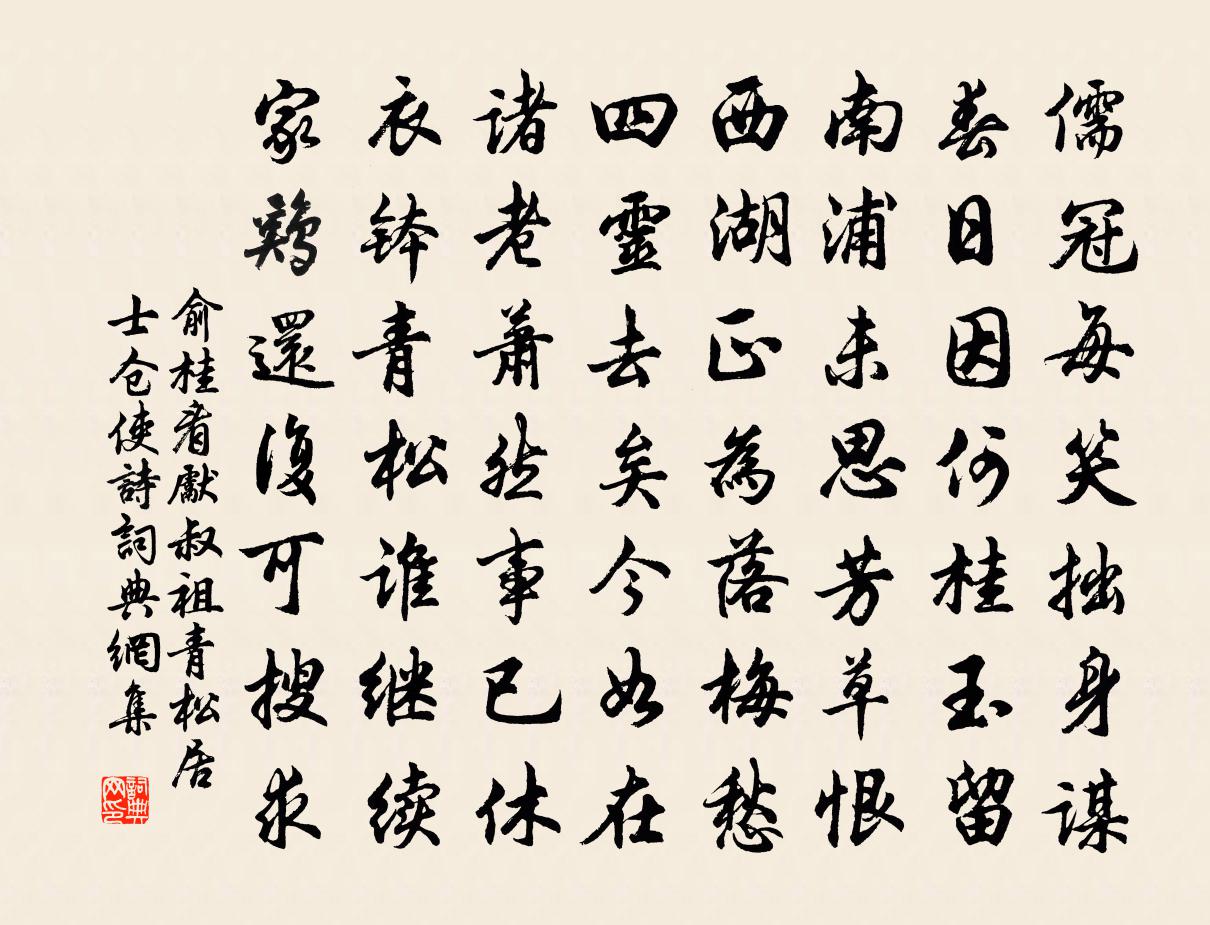 儒冠每笑拙身謀
春日因何桂玉留
南浦未思芳草恨
西湖正為落梅愁
四靈去矣今如在
諸老蕭然事已休
衣缽青松谁继续
家鷄還復可搜求
俞桂看獻叔祖青松居
士仓使詩詞典網集
詞典网印